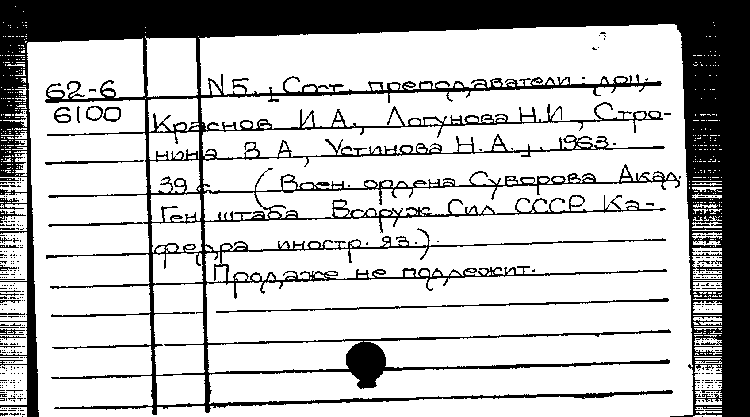 62-6
6100
N 5. [Сост. преподаватели: доц.
Краснов И.А., Логунова Н.И., Стро-
нина В.А., Устинова Н.А.]. 1963.
39 с. (Воен. ордена Суворова Акад.
Ген. штаба Вооруж. Сил СССР. Ка-
федра иностр. яз.).
Продаже не подлежит.